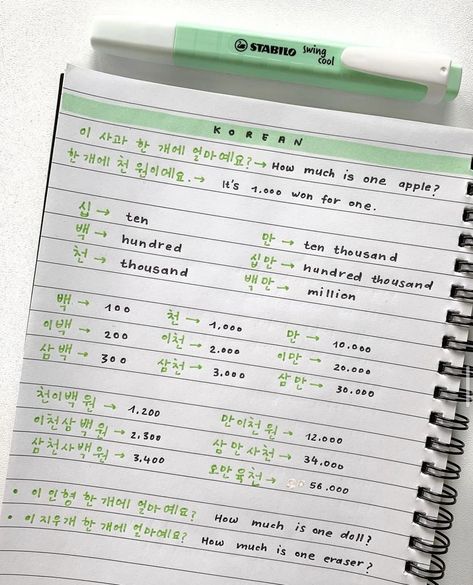 STABILO swing cool
KOREAN
이 사과 한 개에 얼마예요? → How much is one apple?
한 개에 천 원이에요. → It's 1.000 won for one.
십 → ten
백 → hundred
천 → thousand
만 → ten thousand
십만 → hundred thousand
백만 → million
백 → 100
이백 → 200
삼백 → 300
천 → 1.000
이천 → 2.000
삼천 → 3.000
만 → 10.000
이만 → 20.000
삼만 → 30.000
천이백 원 → 1.200
이천삼백 원 → 2.300
삼천사백 원 → 3.400
만이천 원 → 12.000
삼만사천 → 34.000
오만육천 → 56.000
• 이 인형 한 개에 얼마예요? How much is one doll?
• 이 지우개 한 개에 얼마예요? How much is one eraser?